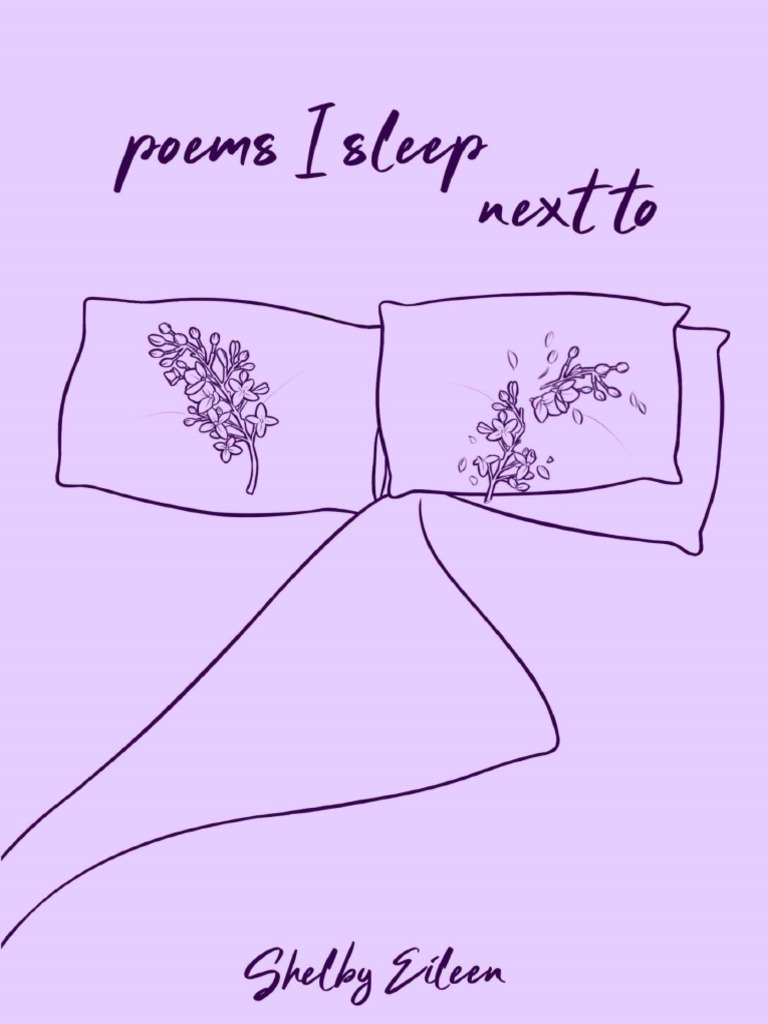 poems I sleep
next to
Shelby Eileen